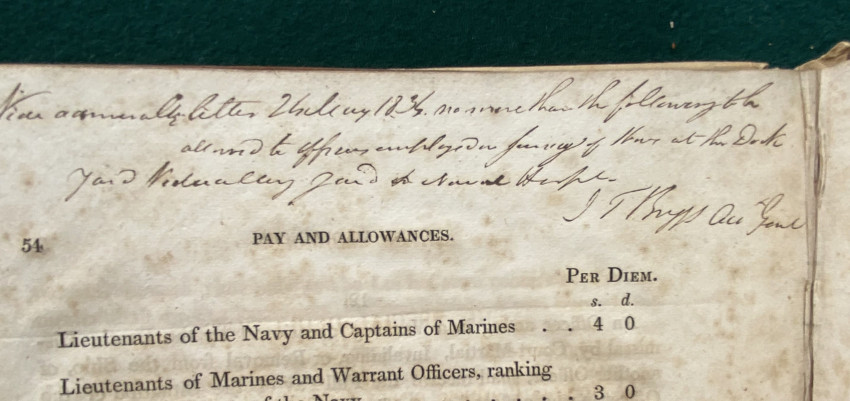 Vide admiralty letter 2 May 183 no more than the following to be
allowed to officers employed on survey of at the Dock
Yard Victualling Yard & Naval Hospl
J T Briggs Acc Genl
54
PAY AND ALLOWANCES.
PER DIEM.
s. d.
Lieutenants of the Navy and Captains of Marines . . 4 0
Lieutenants of Marines and Warrant Officers, ranking
of the Navy . . . . . . 3 0